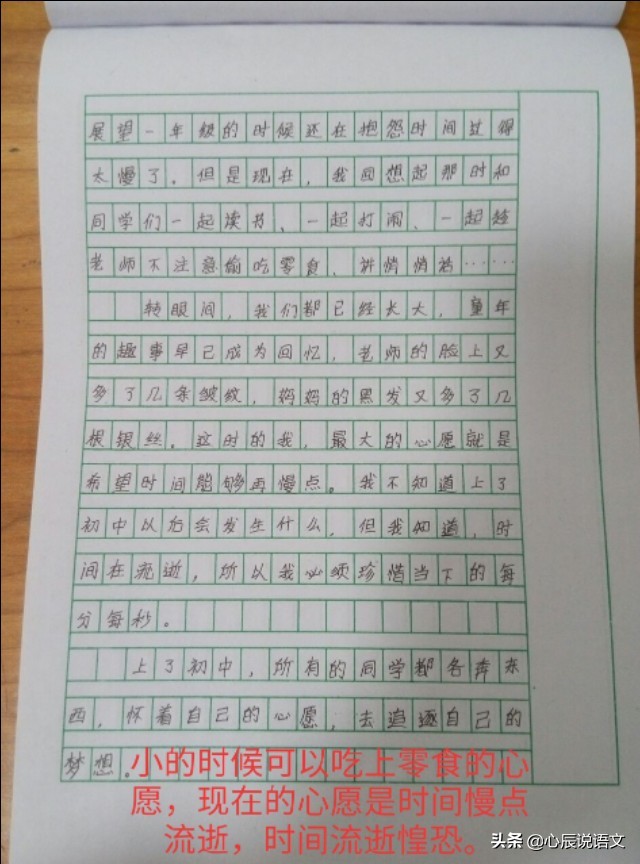 展望一年级的时候还在抱怨时间过得
太慢了。但是现在，我回想起那时和
同学们一起读书、一起打闹、一起趁
老师不注意偷吃零食、讲悄悄话……
转眼间，我们都已经长大，童年
的趣事早已成为回忆，老师的脸上又
多了几条皱纹，妈妈的黑发又多了几
根银丝。这时的我，最大的心愿就是
希望时间能够再慢点。我不知道上了
初中以后会发生什么，但我知道，时
间在流逝，所以我必须珍惜当下的每
分每秒。
上了初中，所有的同学都各奔东
西，怀着自己的心愿，去追逐自己的
梦想。
小的时候可以吃上零食的心
愿，现在的心愿是时间慢点
流逝，时间流逝惶恐。
头条 @心辰说语文